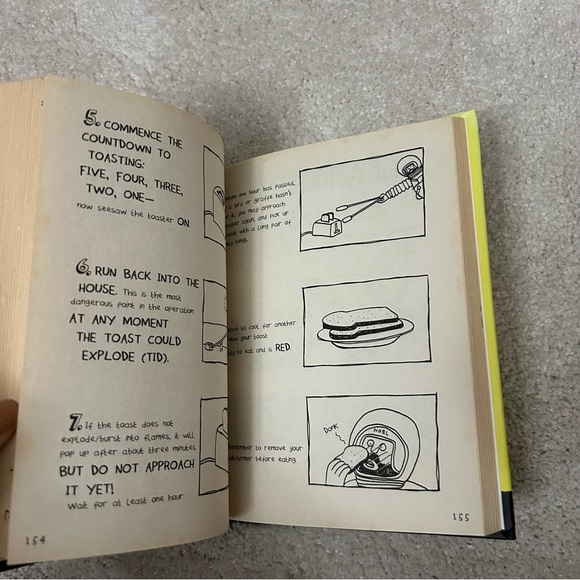 5. COMMENCE THE
COUNTDOWN TO
TOASTING:
FIVE, FOUR, THREE,
TWO, ONE—
now seesaw the toaster ON.
6. RUN BACK INTO THE
HOUSE. This is the most
dangerous point in the operation
AT ANY MOMENT
THE TOAST COULD
EXPLODE (TID).
7. If the toast does not
explode/burst into flames, it will
pop up after about three minutes
BUT DO NOT APPROACH
IT YET!
Wait for at least one hour.
154
one hour has passed,
a bird or giraffe hasn't
it, you may approach
again, and pick up
with a long pair of
tongs.
to cool for another
your toast
to eat and is RED.
remember to remove your
armor before eating.
Donk
NOEL
155